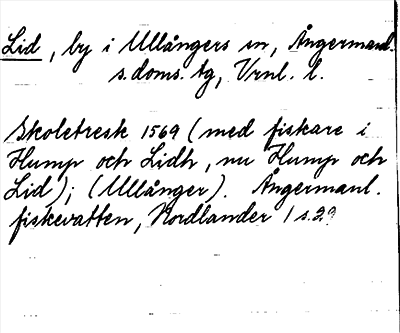 Lid, by i Ullångers sn, Ångermanl.
s. doms. tg, Vrnl. l.
Skoletresk 1569 (med fiskare i
Hump och Lidh, nu Hump och
Lid); (Ullånger). Ångermanl.
fiskevatten, Nordlander 1 s.